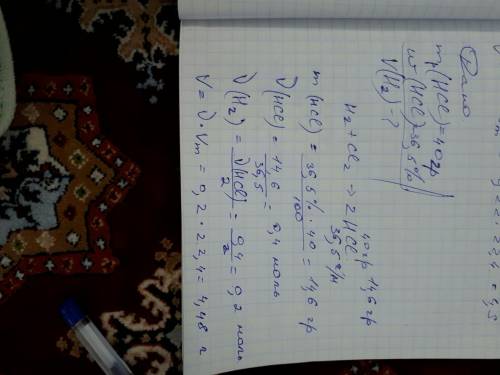 Дано
m(HCl)=40гр
w(HCl)=36,5%
V(H₂)-?
40гр 14,6гр
H₂ + Cl₂ → 2HCl
36,5г/м
m(HCl) = 36,5% · 40 / 100 = 14,6 гр
ν(HCl) = 14,6 / 36,5 = 0,4 моль
ν(H₂) = ν(HCl) / 2 = 0,4 / 2 = 0,2 моль
V = ν · Vm = 0,2 · 22,4 = 4,48 л